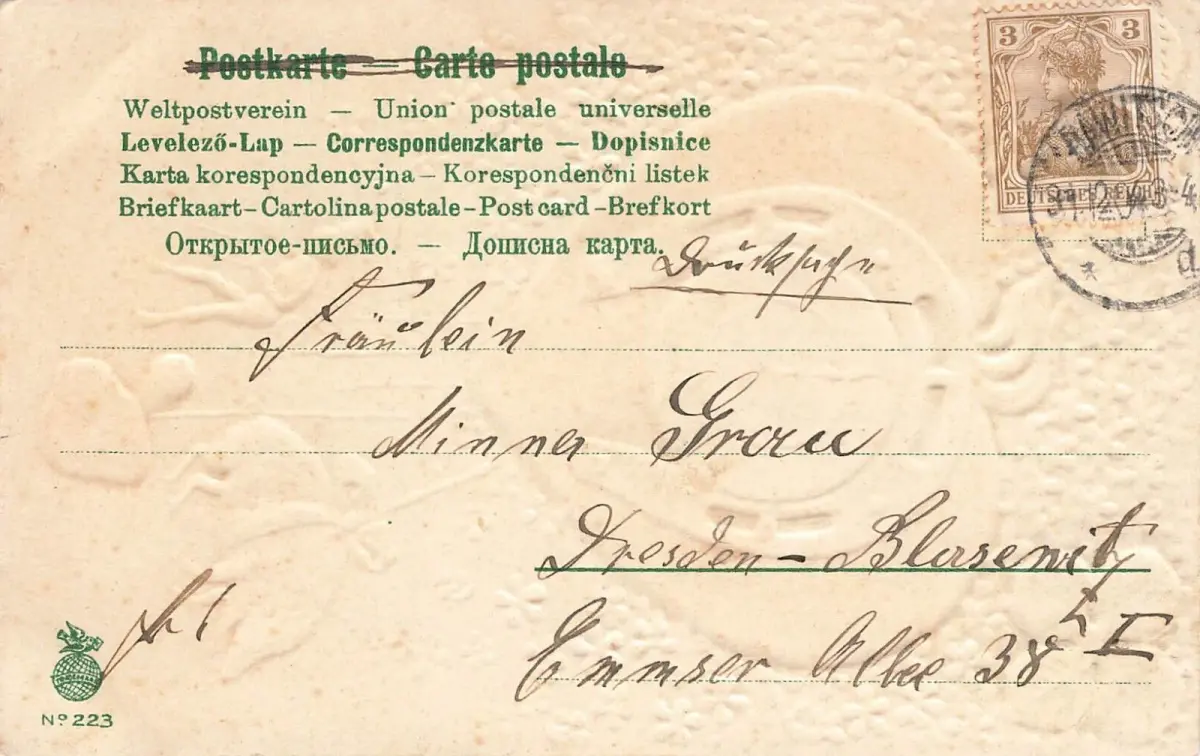 Postkarte — Carte postale
Weltpostverein — Union postale universelle
Levelező-Lap — Correspondenzkarte — Dopisnice
Karta korespondencyjna – Korespondenčni listek
Briefkaart – Cartolina postale – Post card – Brefkort
Открытое-письмо. — Дописна карта.
3 3
DEUTSCHES REICH
31.12.04. 3-4
d
Drucksache
Fräulein
Minna Grau
Dresden – Blasewitz
Emmser Allee 38 I
Nº 223